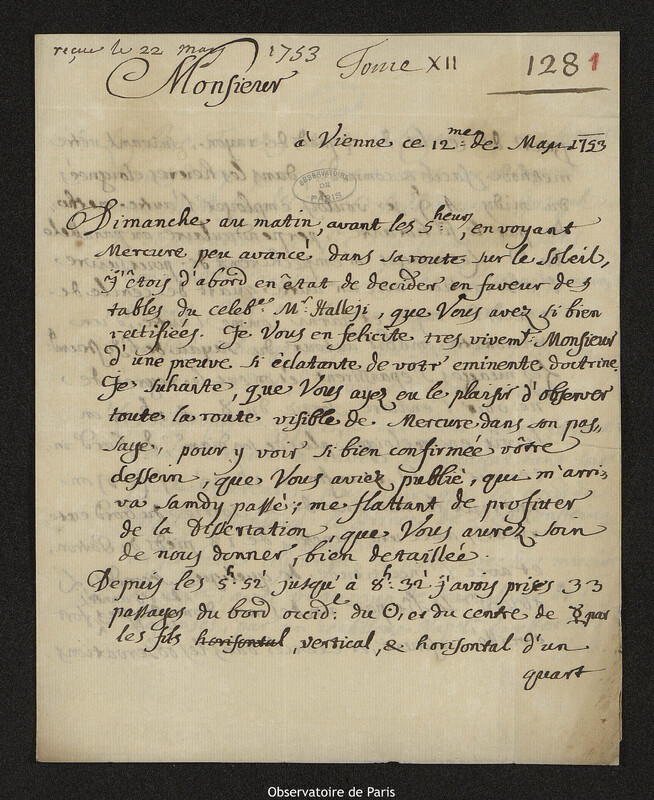 reçue le 22 may 1753 Tome XII 1281
Monsieur
OBSERVATOIRE DE PARIS
à Vienne ce 12.me de May 1753
Dimanche au matin, avant les 5.heur, en voyant
Mercure peu avancé dans sa route sur le Soleil,
j'êtois d'abord en êtat de decider en faveur des
tables du celeb.e Mr. Halleji, que Vous avez si bien
rectifiées. Je Vous en felicite tres vivemt. Monsieur
d'une preuve si éclatante de votr eminente doctrine.
Je suhaite, que Vous ayez eu le plaisir d'observer
toute la route visible de Mercure dans son pas,
sage, pour y voir si bien confirmée vôtre
dessein, que Vous aviez publié, qui m'arri,
va Samdy passé; me flattant de profiter
de la Dissertation, que Vous aurez soin
de nous donner, bien detaillée.
Depuis les 5h. 52' jusqu'à 8h. 32' j'avois prises 33
passages du bord occid.l du ☉, et du centre de ☿ par
les fils horisontal, vertical, & horisontal d'un
quart
Observatoire de Paris